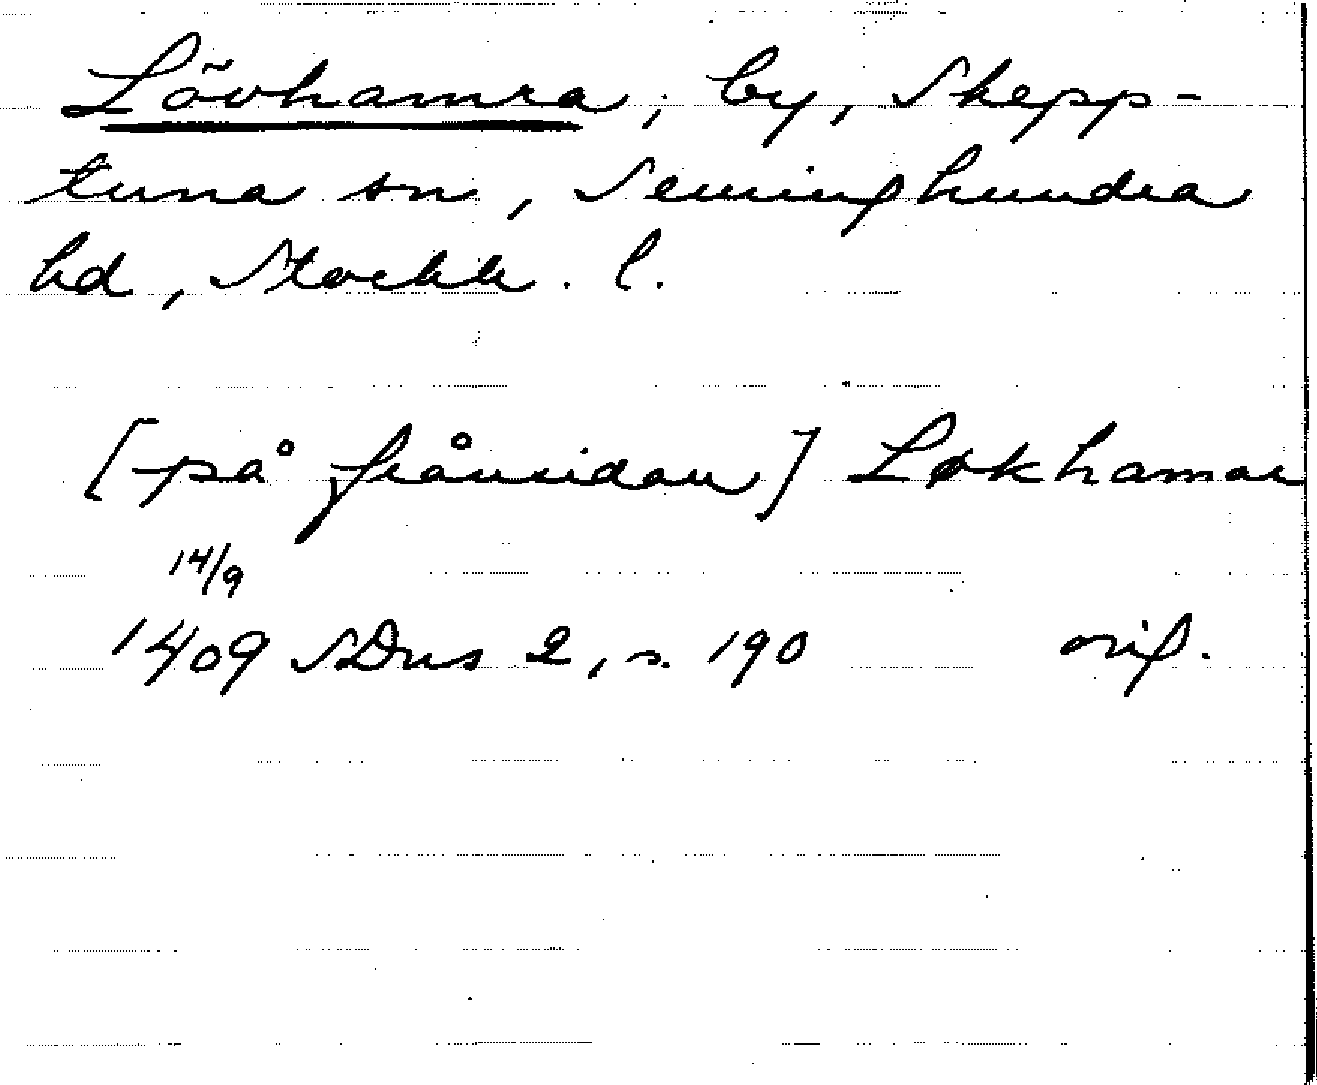 Lövhamra, by, Skepp-
tuna sn, Seminghundra
hd, Stockh. l.
[på frånsidan] Løkhamar
14/9
1409 SDns 2, s. 190 orig.